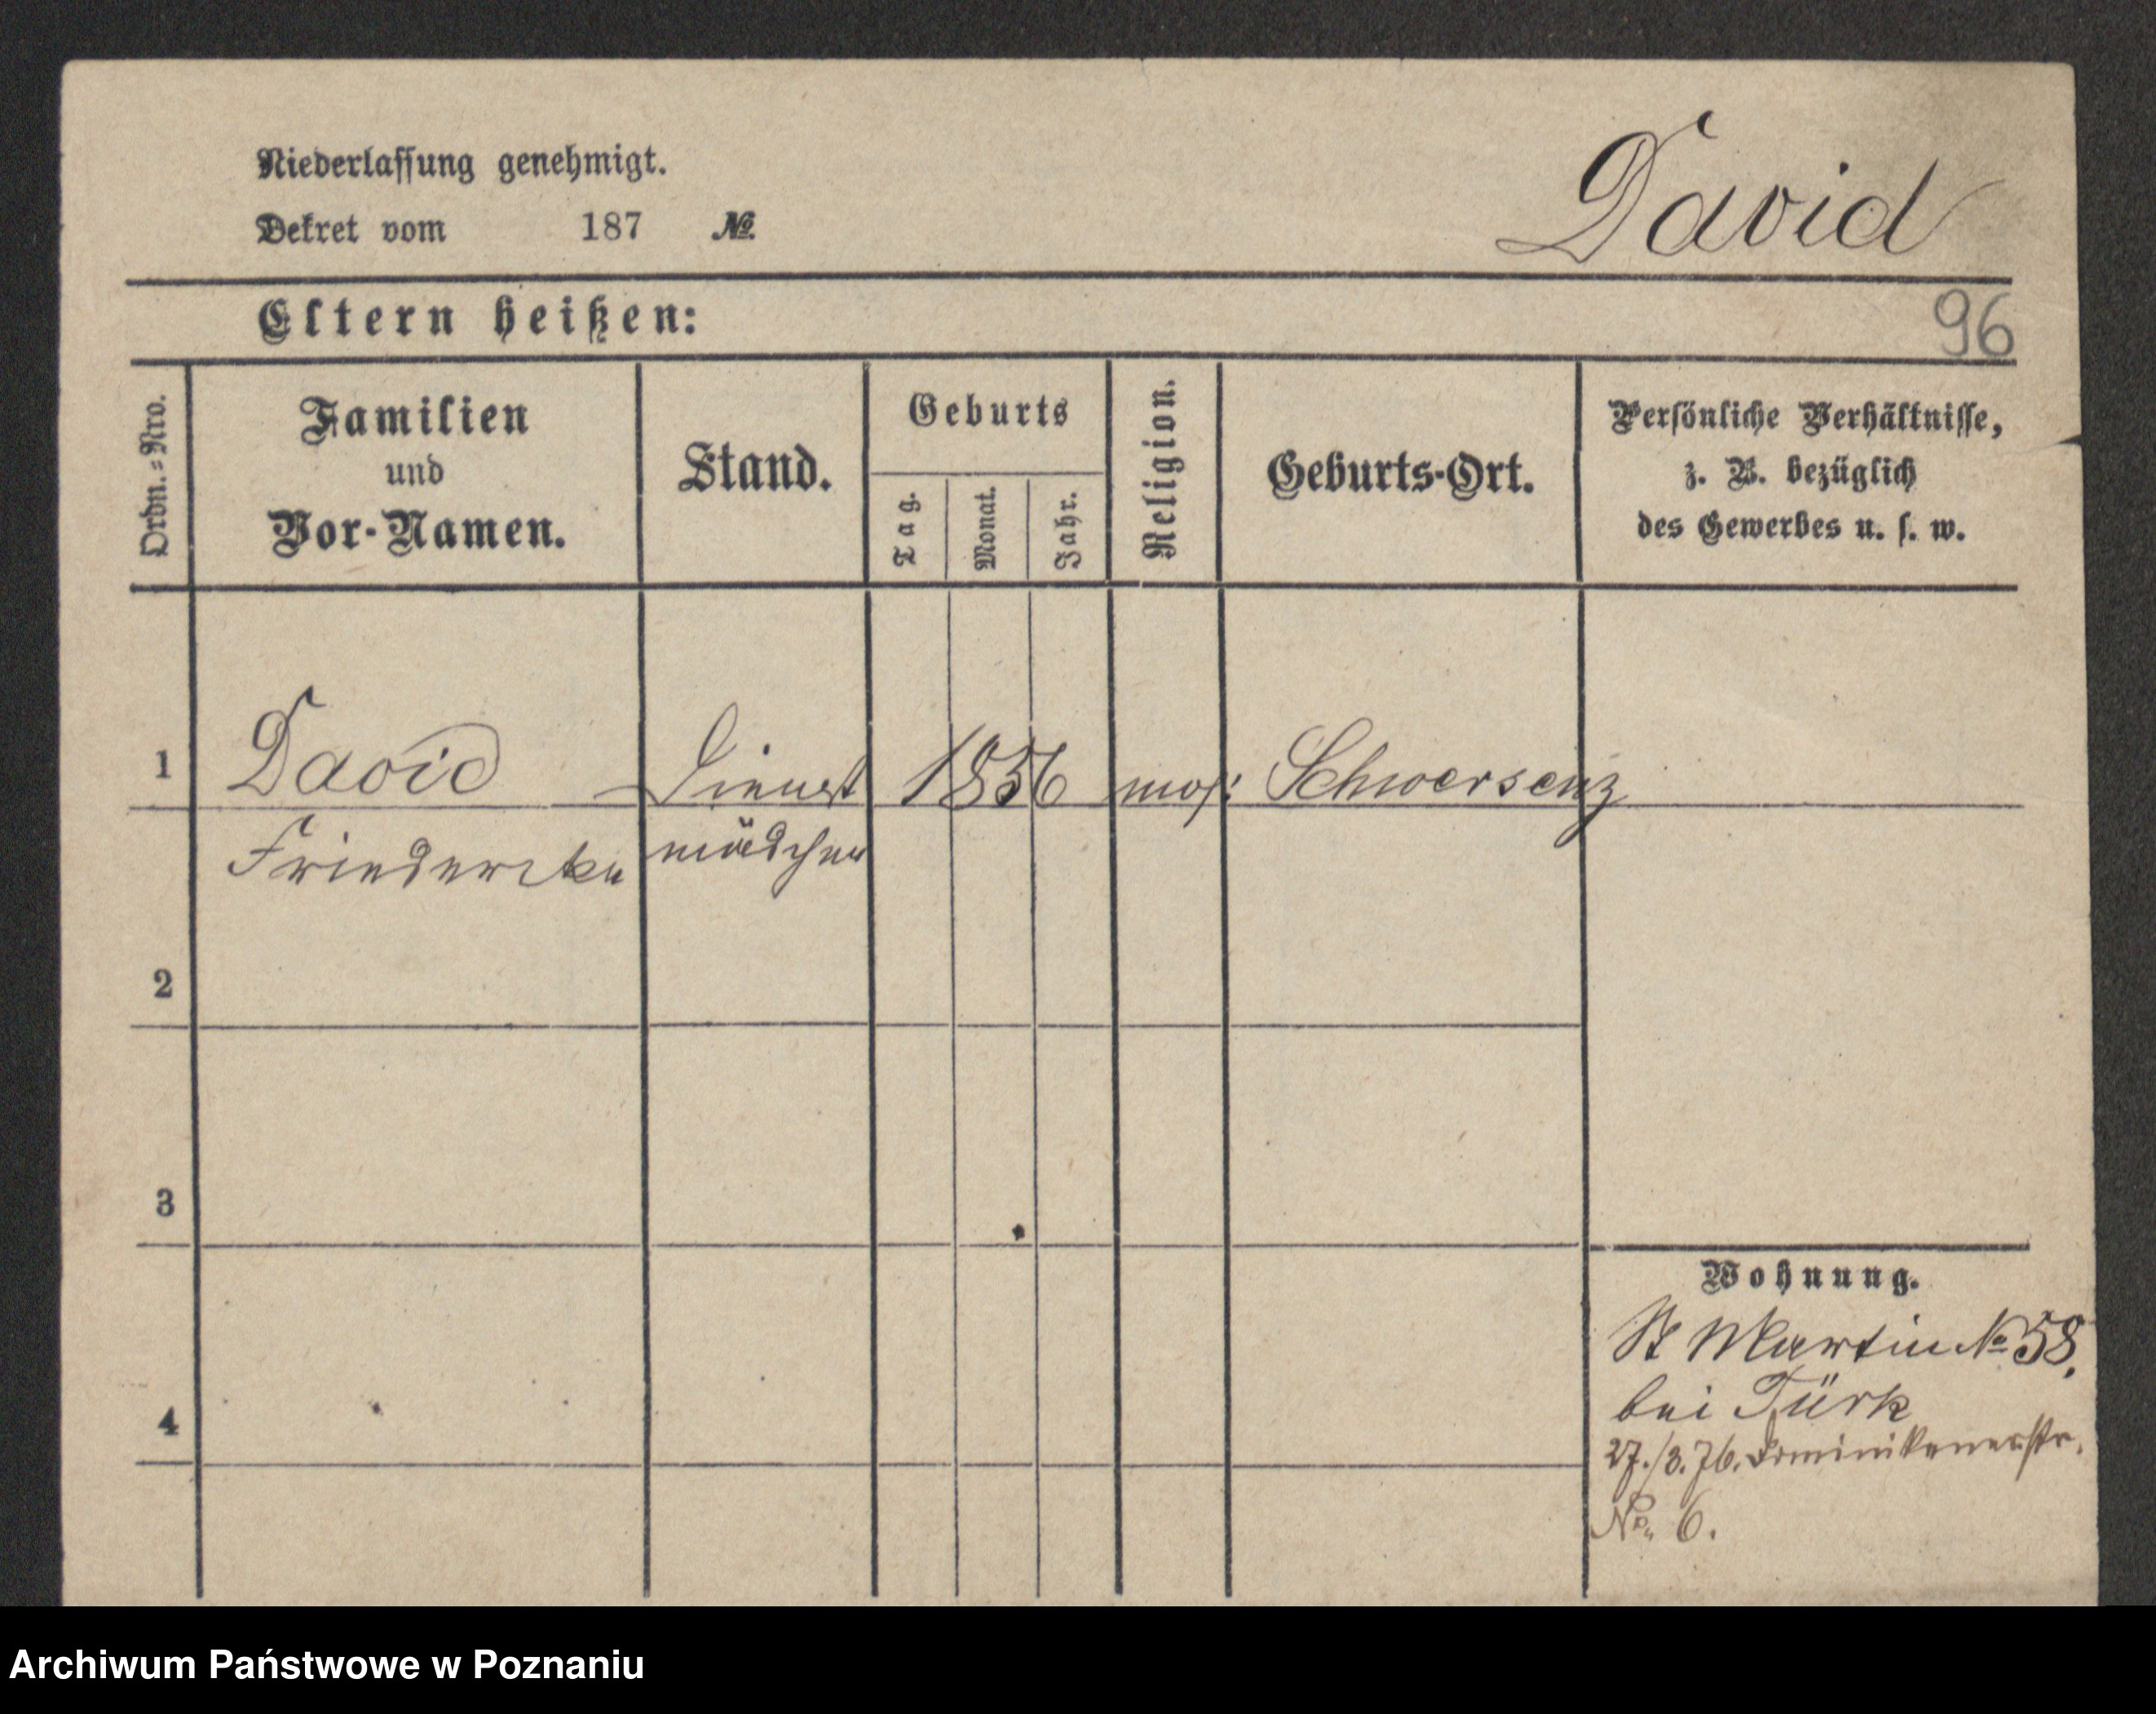 Niederlassung genehmigt.
David
Dekret vom 187 №
Eltern heißen:
96
Ordn.=Nro.
Familien
und
Vor-Namen.
Stand.
Geburts
Tag.
Monat.
Jahr.
Religion.
Geburts-Ort.
Persönliche Verhältnisse,
z. B. bezüglich
des Gewerbes u. s. w.
1 David Dienst 1856 mos: Schwersenz
Friedericke mädchen
2
3
Wohnung.
St Martin № 58.
bei Türk
4
27./3. 76. Dominikanerstr.
No. 6.
Archiwum Państwowe w Poznaniu